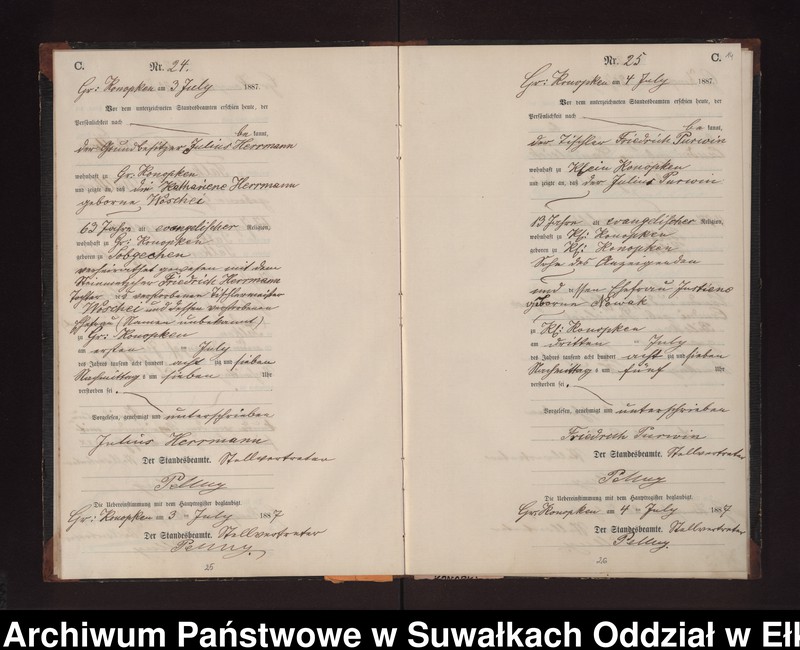 C. Nr. 24.
Gr: Konopken am 3 July 1887.
Vor dem unterzeichneten Standesbeamten erschien heute, der
Persönlichkeit nach
be kannt,
der Grundbesitzer Julius Herrmann
wohnhaft zu Gr. Konopken
und zeigte an, daß die Kathariene Herrmann
geborne Woschei
63 Jahre alt evangelischer Religion,
wohnhaft zu Gr: Konopken
geboren zu
verheirathet gewesen mit dem
Friedrich Herrmann
Tochter des verstorbenen Tischlermeister
Woschei und dessen verstorbenen
Ehefrau (Namen unbekannt)
zu Gr: Konopken
am ersten July
des Jahres tausend acht hundert acht zig und sieben
Nachmittag s um sieben Uhr
verstorben sei.
Vorgelesen, genehmigt und unterschrieben
Julius Herrmann
Der Standesbeamte. Stellvertreter
Die Uebereinstimmung mit dem Hauptregister beglaubigt.
Gr: Konopken am 3 July 1887
Der Standesbeamte. Stellvertreter
25
Nr. 25 C.
Gr: Konopken am 4 July 1887
Vor dem unterzeichneten Standesbeamten erschien heute, der
Persönlichkeit nach
be kannt,
der Tischler Friedrich Purwin
wohnhaft zu Klein Konopken
und zeigte an, daß der Julius Purwin
13 Jahre alt evangelischer Religion,
wohnhaft zu Kl: Konopken
geboren zu Kl: Konopken
Sohn des Anzeigenden
und dessen Ehefrau Justiene
geborne Nowak
zu Kl: Konopken
am dritten July
des Jahres tausend acht hundert acht zig und sieben
Nachmittag s um fünf Uhr
verstorben sei.
Vorgelesen, genehmigt und unterschrieben
Friedrich Purwin
Der Standesbeamte. Stellvertreter
Die Uebereinstimmung mit dem Hauptregister beglaubigt.
Gr. Konopken am 4 July 1887
Der Standesbeamte. Stellvertreter
26
Archiwum Państwowe w Suwałkach Oddział w Ełk